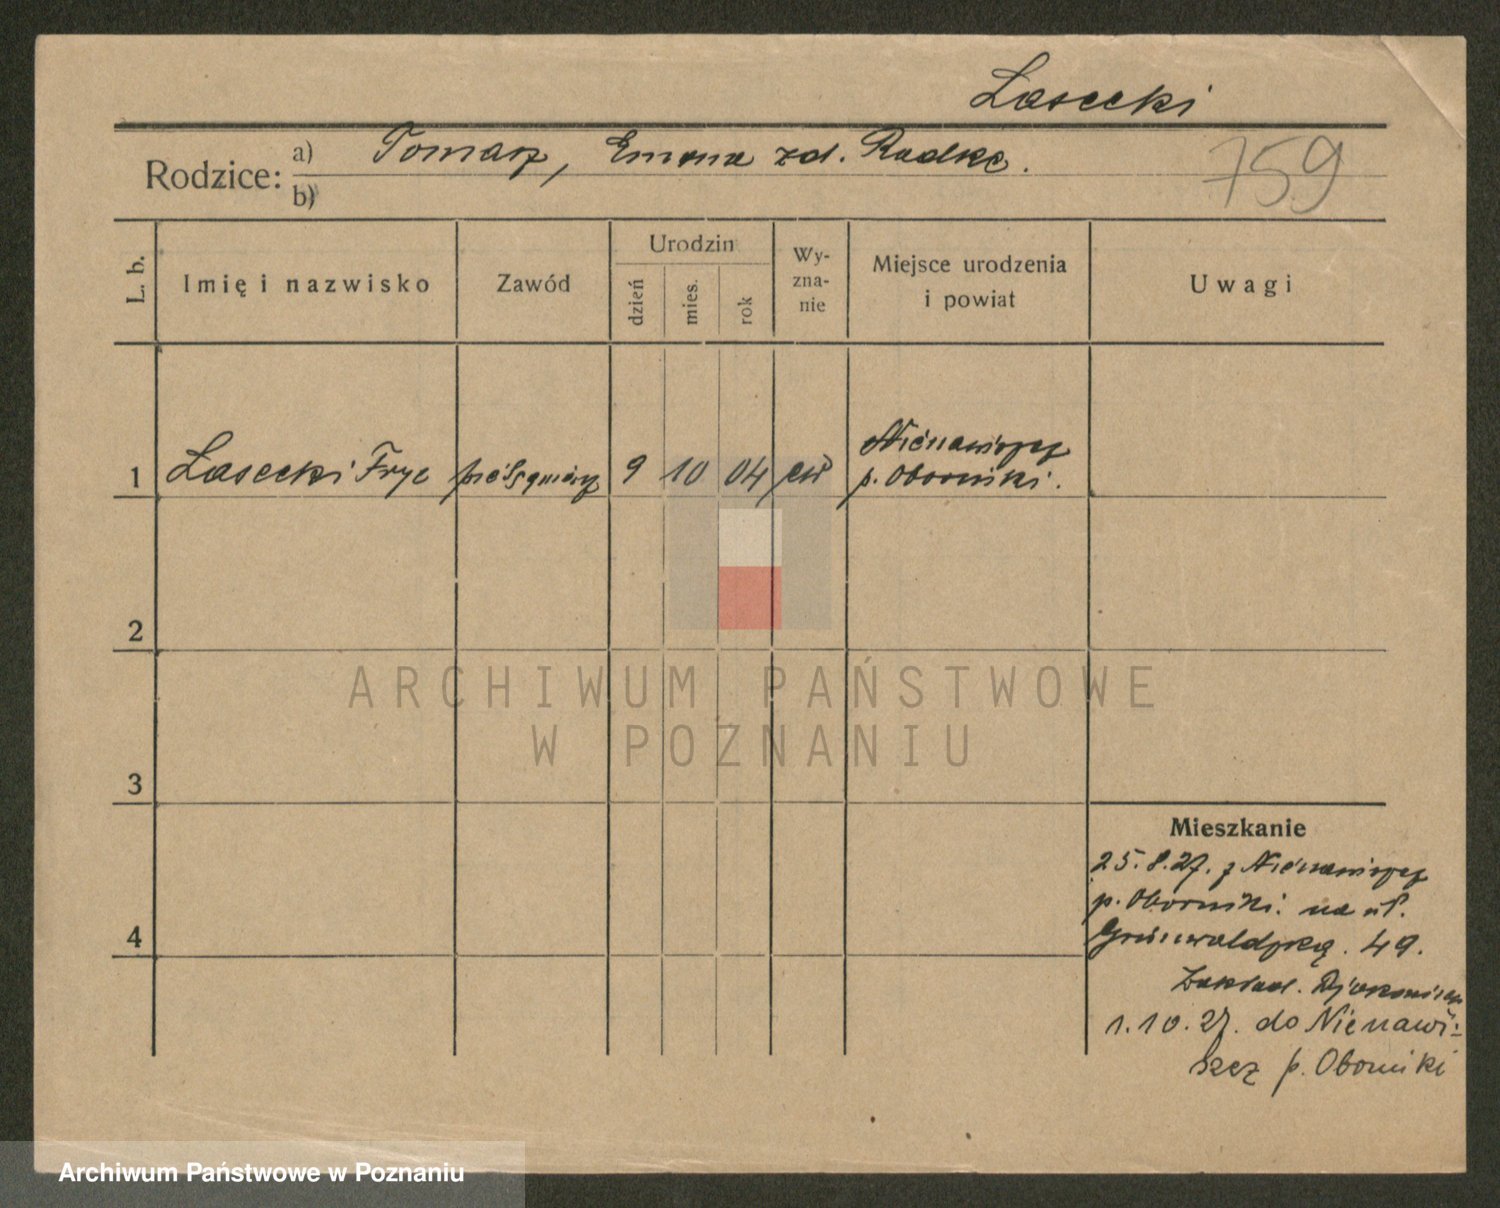 Lasecki
Rodzice: a) Tomasz, Emma zd. Radke. 759
b)
L. b. Imię i nazwisko Zawód Urodzin dzień mies. rok Wy-zna-nie Miejsce urodzenia i powiat Uwagi
Nienawiszcz
1 Lasecki Fryc 9 10 04 ew p. Oborniki.
2
ARCHIWUM PAŃSTWOWE
W POZNANIU
3
Mieszkanie
25.8.27. z Nienawiszcz
p. Oborniki. na ul.
4 Grunwaldzką. 49.
Zakład.
1.10.27. do Nienawi-
szcz p. Oborniki
Archiwum Państwowe w Poznaniu